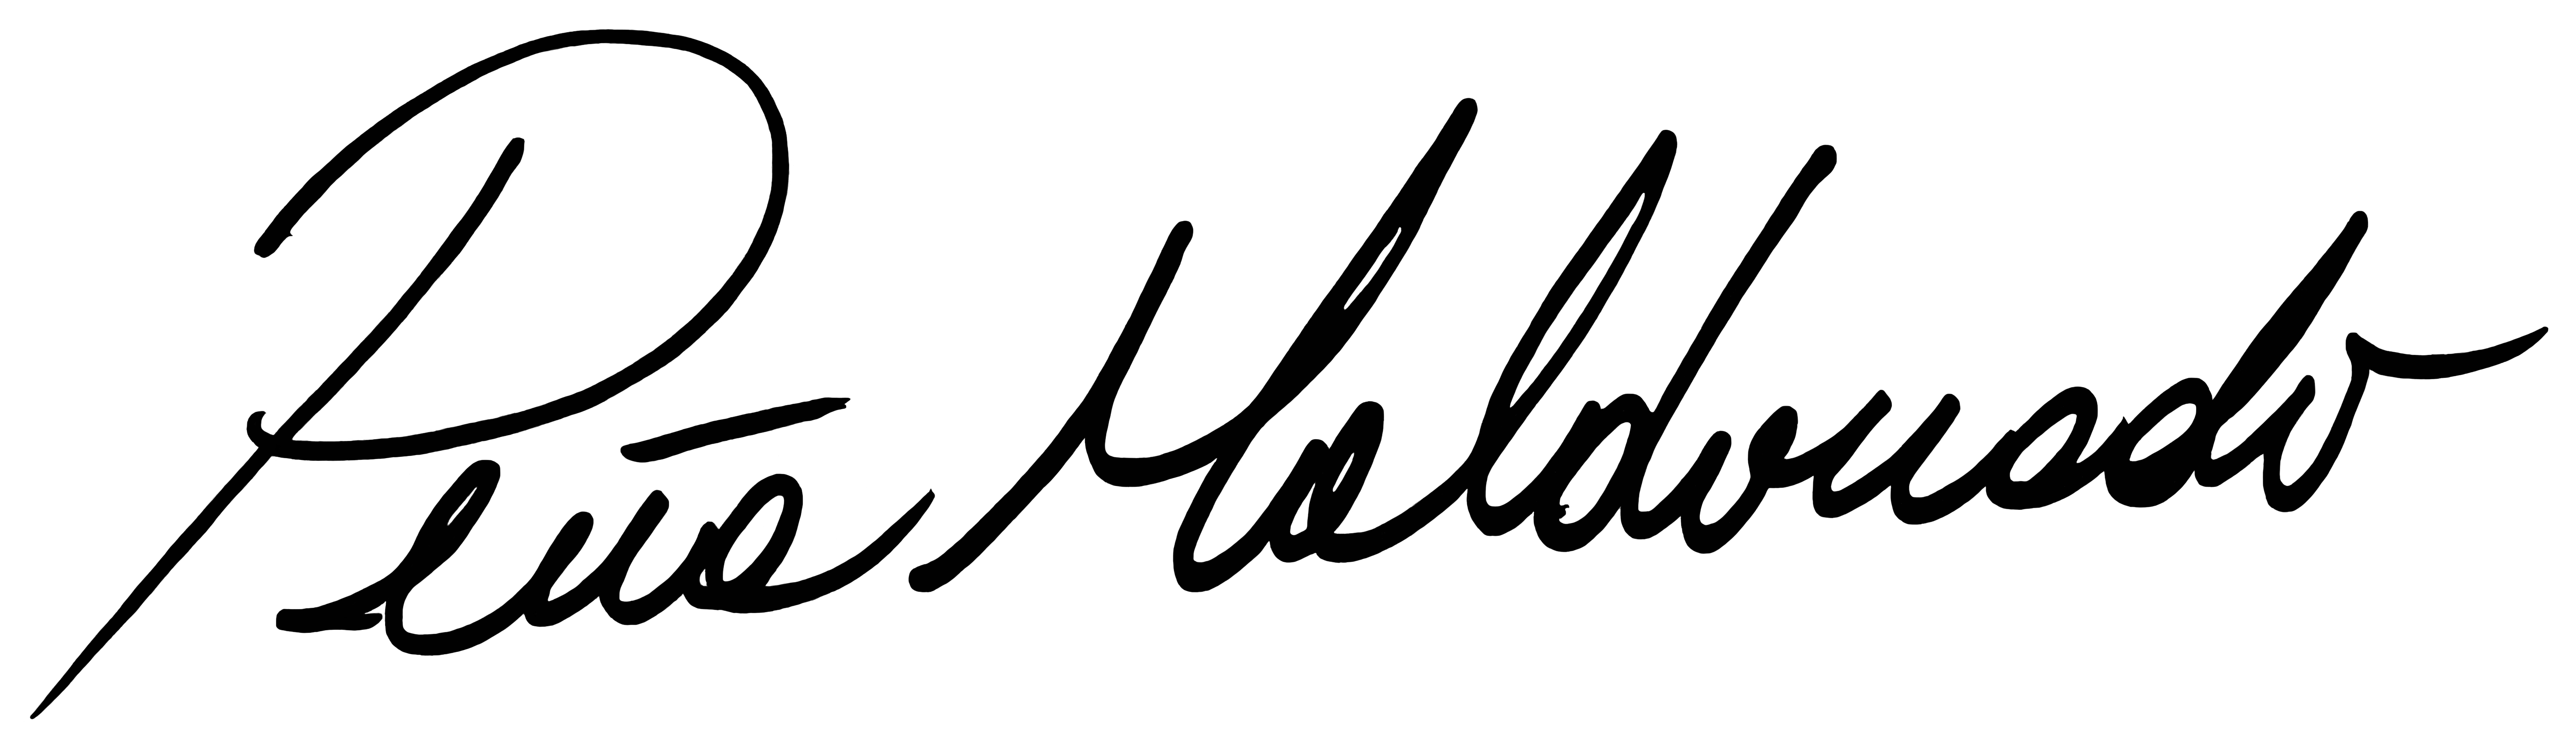 Peña Maldonado